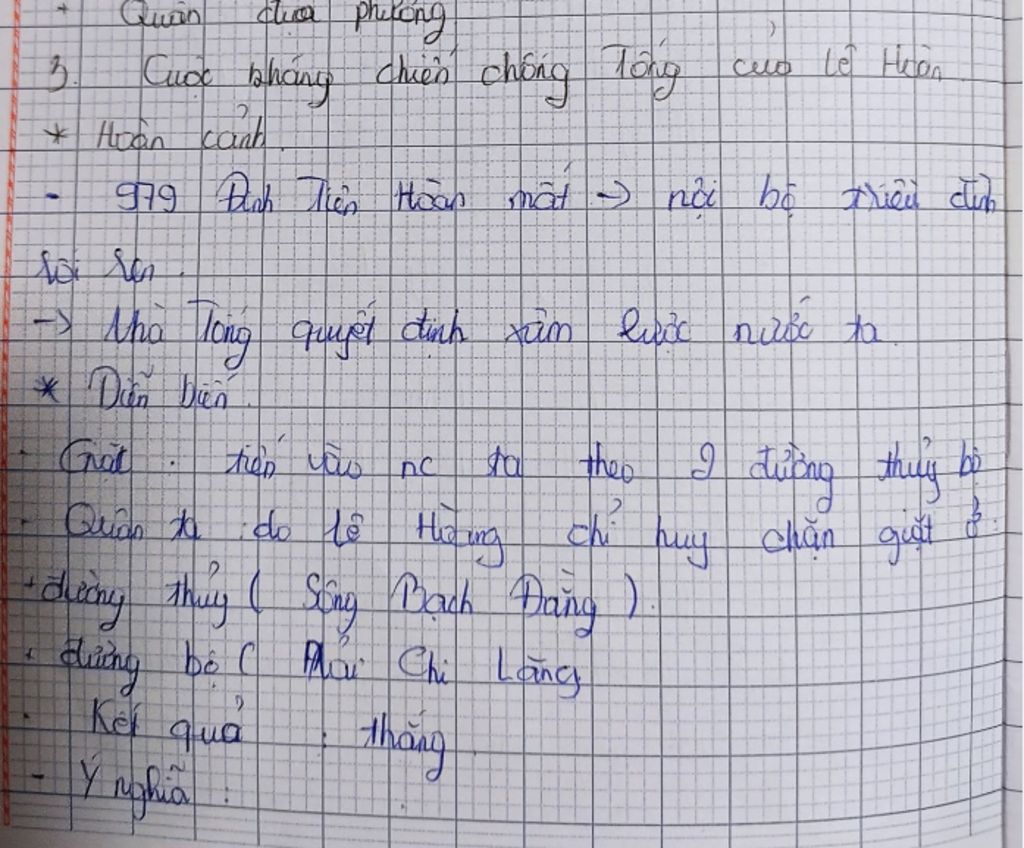 + Quân địa phương
3. Cuộc kháng chiến chống Tống của Lê Hoàn
* Hoàn cảnh.
- 979 Đinh Tiên Hoàn mất → nội bộ triều đình
lôi lên.
→ Nhà Tống quyết định xâm lược nước ta.
* Diễn biến.
- Giặt. tiến vào nc ta theo 2 đường thủy bộ
- Quân ta do lê Hoàng chỉ huy chặn giặt ở:
+ đường thủy ( Sông Bạch Đằng ).
+ đường bộ ( Ải Chi Lăng
- Kết quả : thắng.
- Ý nghĩa :